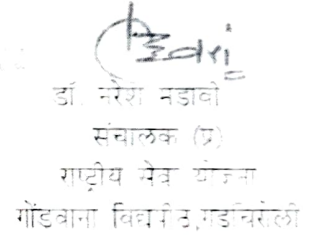 डॉ. नरेश मडावी
संचालक (प्र)
राष्ट्रीय सेवा योजना
गोंडवाना विद्यापीठ, गडचिरोली